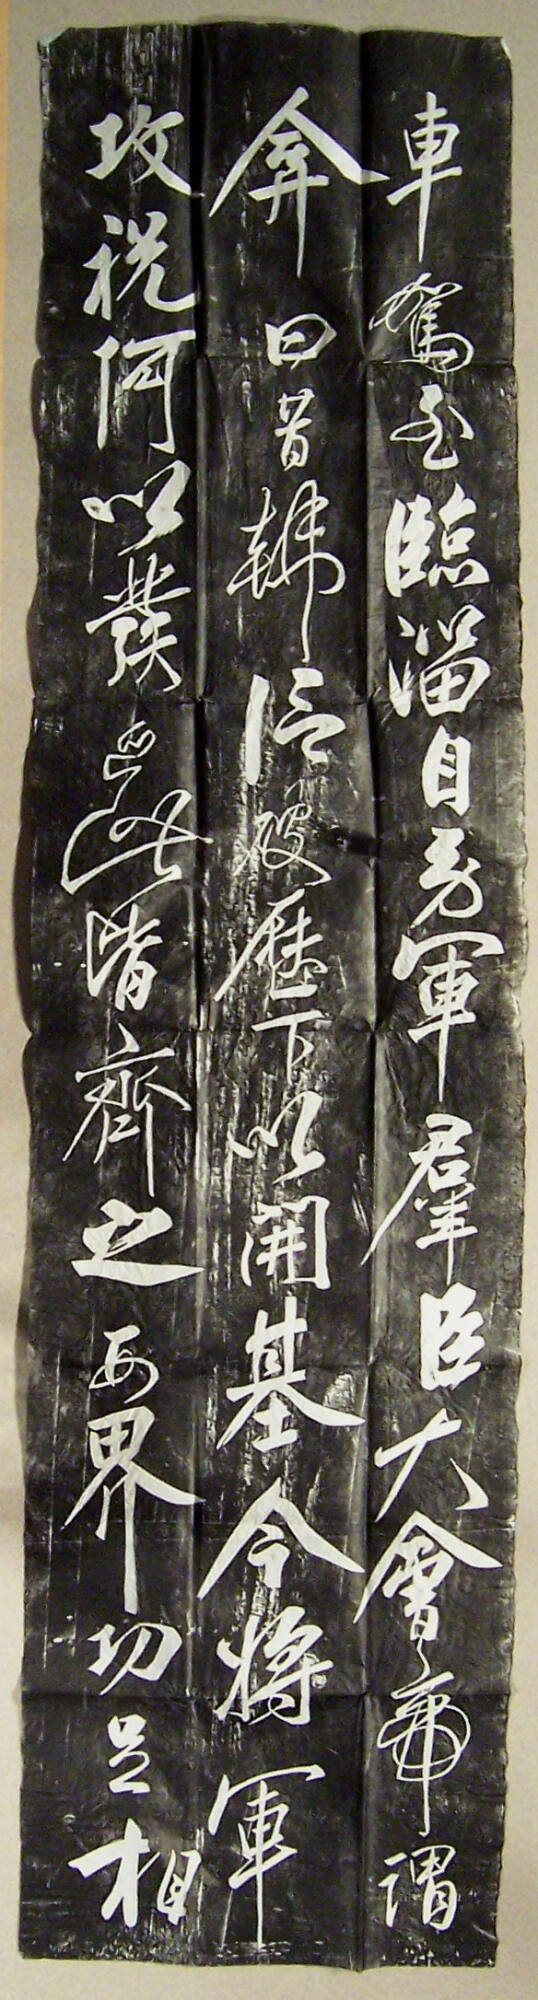 車駕至臨淄自勞軍羣臣大會帝謂
弇曰昔韓信破歷下以開基今將軍
攻祝阿以發迹此皆齊之西界功足相